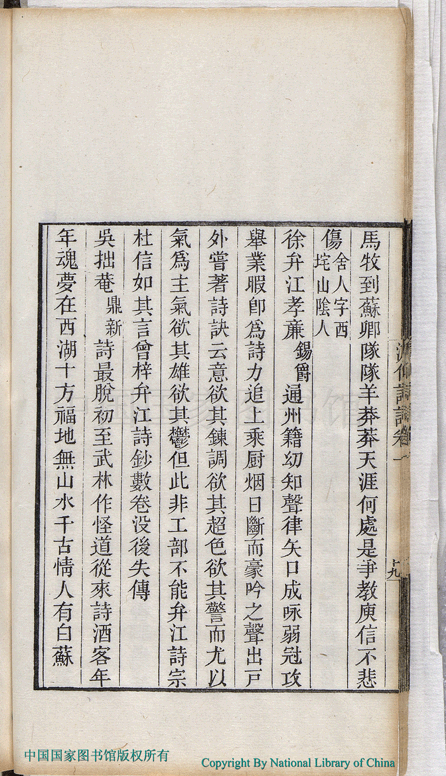 馬牧到蘇卿隊隊羊莽莽天涯何處是爭教庾信不悲
傷舍人字西
坨山陰人
徐弁江孝亷錫爵通州籍幼知聲律矢口成咏弱冠攻
舉業暇卽爲詩力追上乘厨烟日斷而豪吟之聲出戸
外嘗著詩訣云意欲其鍊調欲其超色欲其警而尤以
氣爲主氣欲其雄欲其鬱但此非工部不能弁江詩宗
杜信如其言曾梓弁江詩鈔數卷没後失傳
吳拙菴鼎新詩最脫初至武林作怪道從來詩酒客年
年魂夢在西湖十方福地無山水千古情人有白蘇
詩話卷一
十九
中国国家图书馆版权所有
Copyright By National Library of China